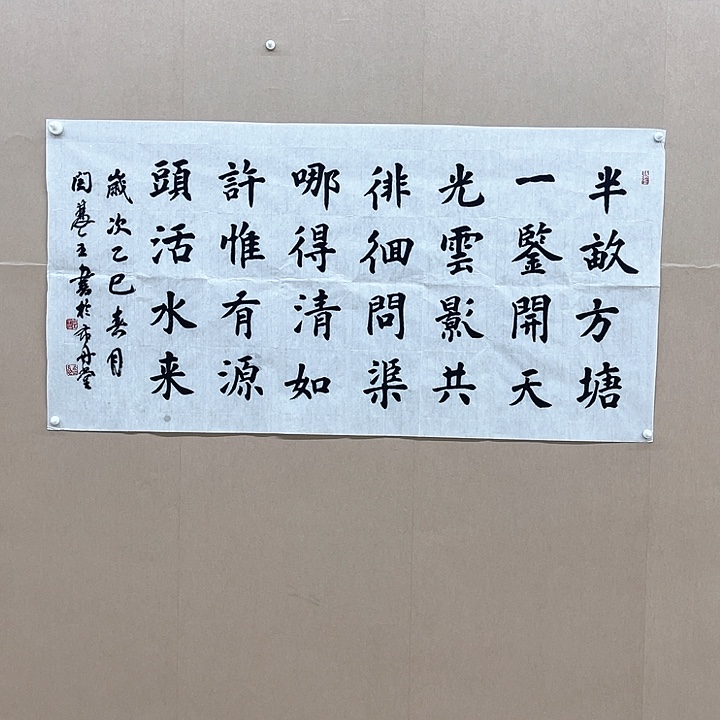 半畝方塘
一鑒開天
光雲影共
徘徊問渠
哪得清如
許惟有源
頭活水来
歲次乙巳春月
書於